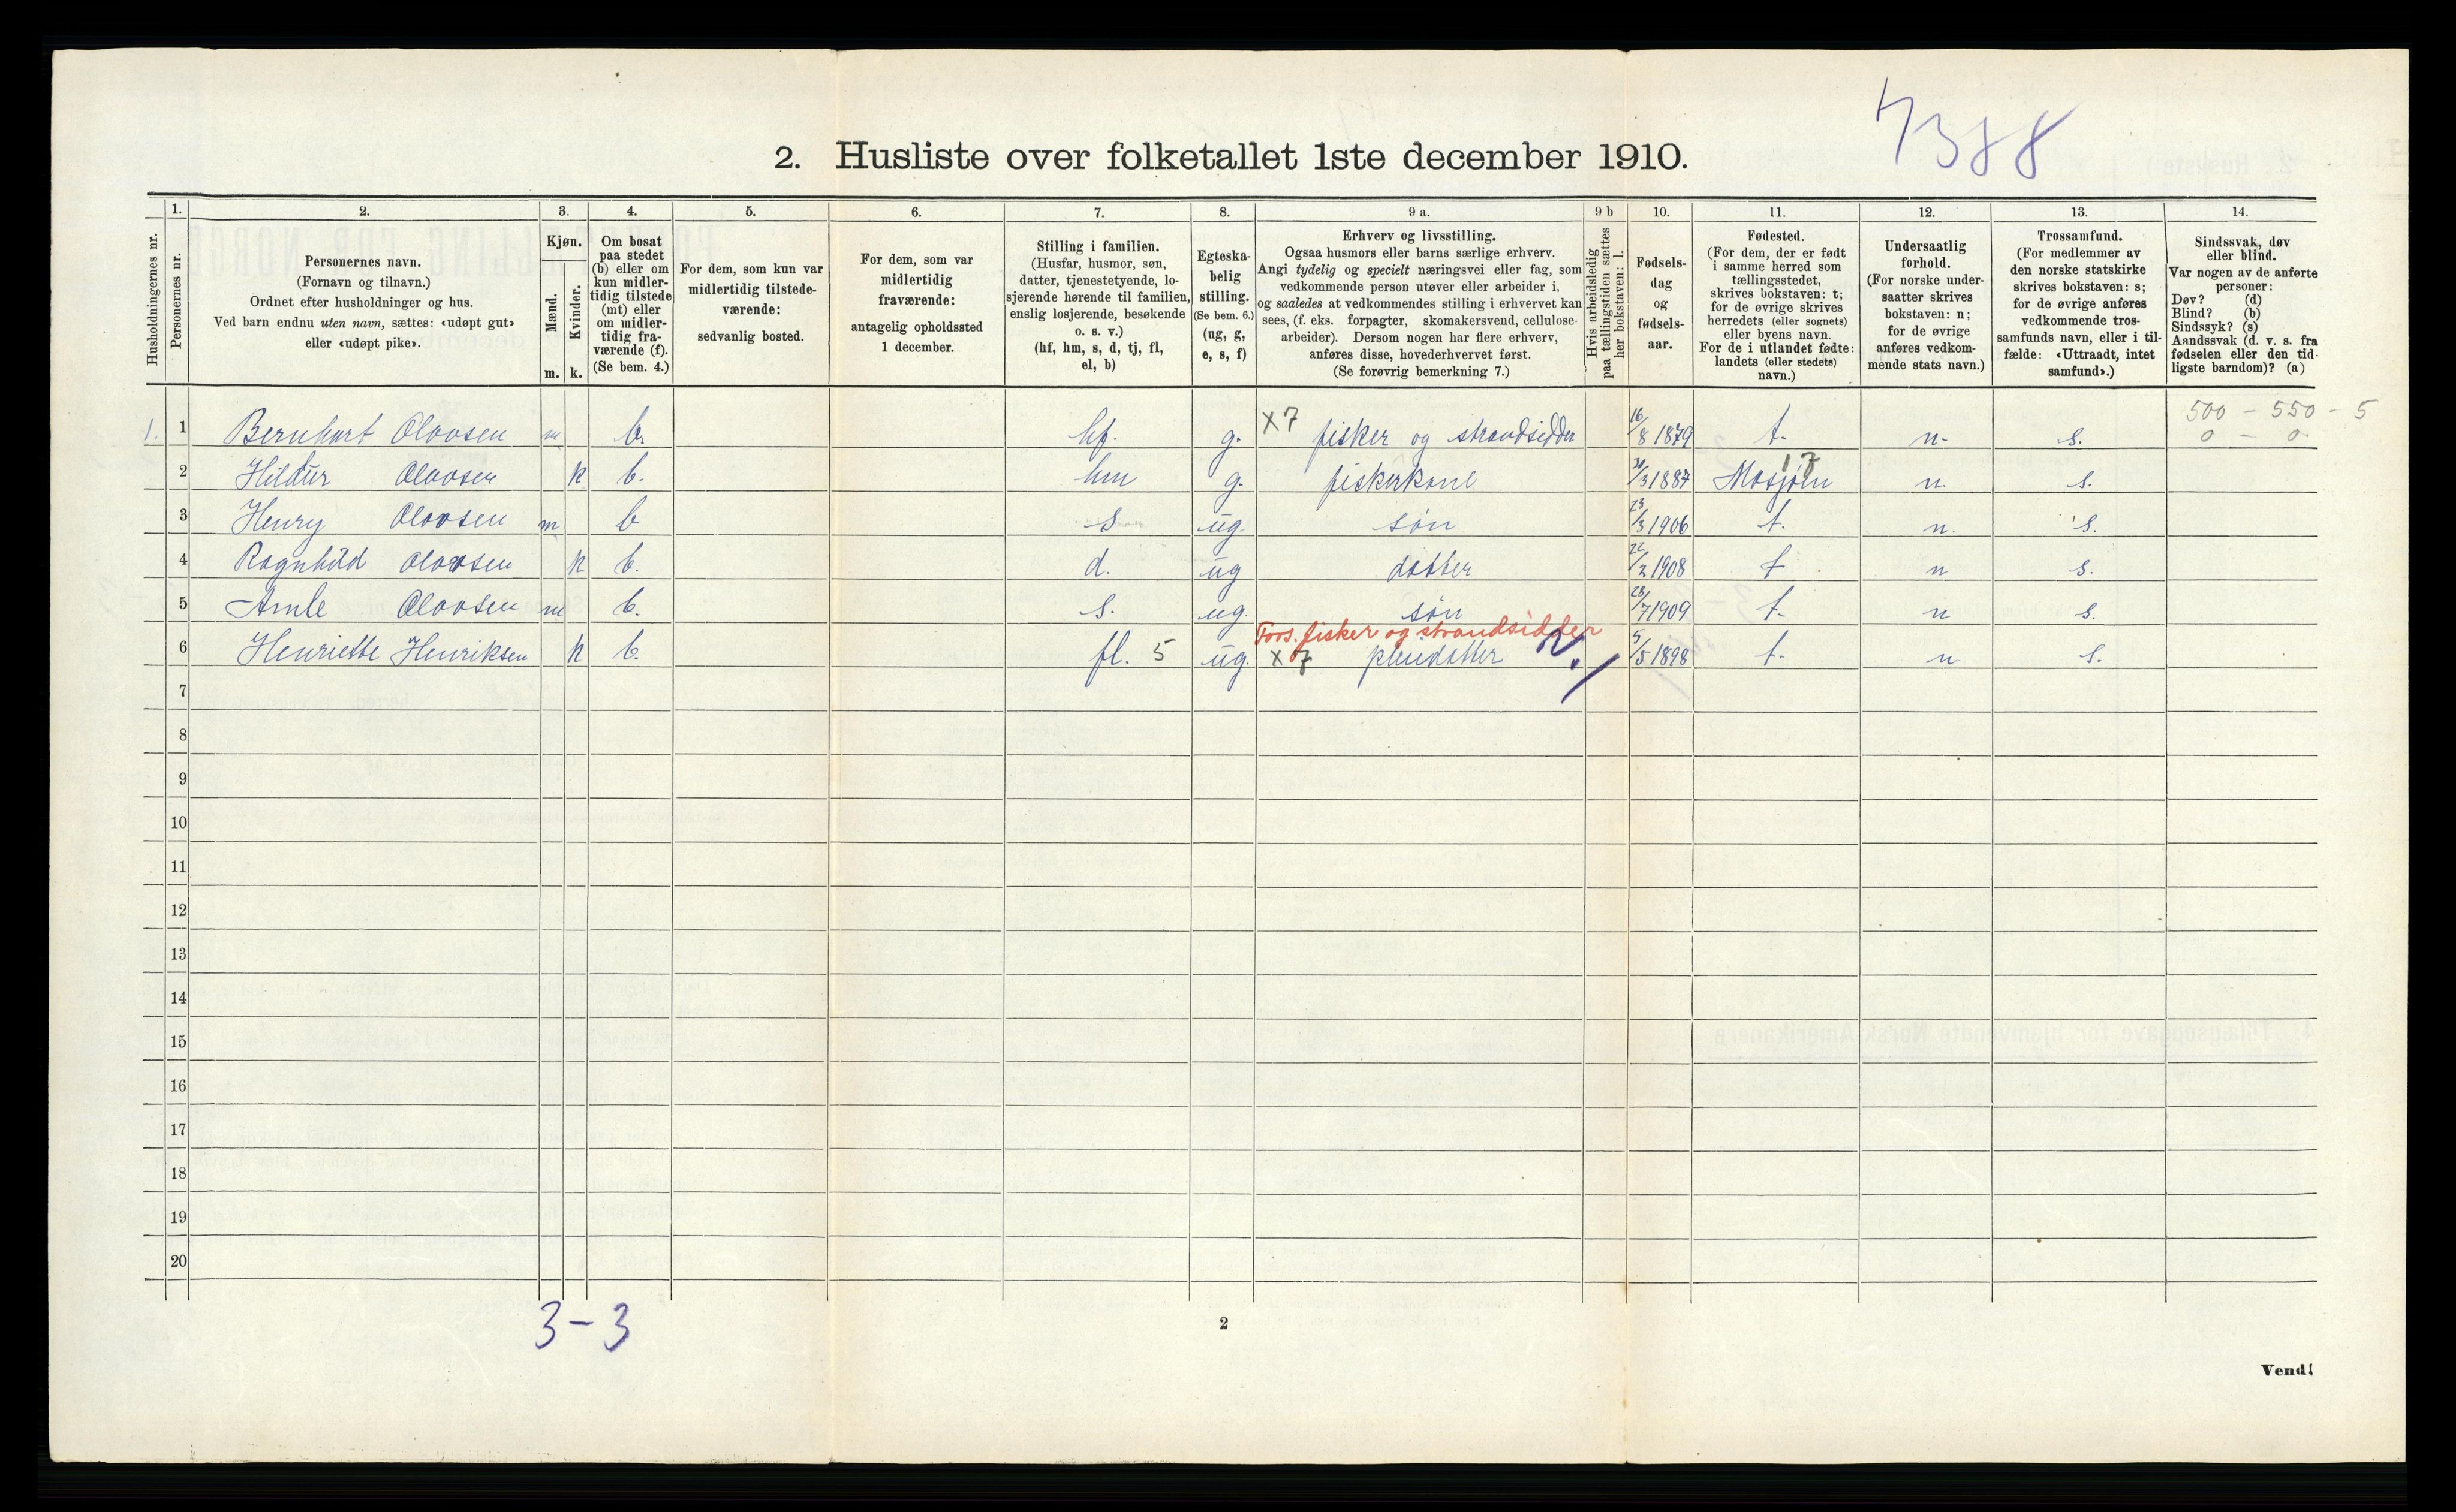 7388
2. Husliste over folketallet 1ste december 1910.
Husholdningernes nr.
1.
Personernes nr.
2.
Personernes navn.
(Fornavn og tilnavn.)
Ordnet efter husholdninger og hus.
Ved barn endnu uten navn, sættes: «udøpt gut»
eller «udøpt pike».
3.
Kjøn.
Mænd.
m.
Kvinder.
k.
4.
Om bosat
paa stedet
(b) eller om
kun midler-
tidig tilstede
(mt) eller
om midler-
tidig fra-
værende (f).
(Se bem. 4.)
5.
For dem, som kun var
midlertidig tilstede-
værende:
sedvanlig bosted.
6.
For dem, som var
midlertidig
fraværende:
antagelig opholdssted
1 december.
7.
Stilling i familien.
(Husfar, husmor, søn,
datter, tjenestetyende, lo-
sjerende hørende til familien,
enslig losjerende, besøkende
o. s. v.)
(hf, hm, s, d, tj, fl,
el, b)
8.
Egteska-
belig
stilling.
(Se bem. 6.)
(ug, g,
e, s, f)
9 a.
Erhverv og livsstilling.
Ogsaa husmors eller barns særlige erhverv.
Angi tydelig og specielt næringsvei eller fag, som
vedkommende person utøver eller arbeider i,
og saaledes at vedkommendes stilling i erhvervet kan
sees, (f. eks. forpagter, skomakersvend, cellulose-
arbeider). Dersom nogen har flere erhverv,
anføres disse, hovederhvervet først.
(Se forøvrig bemerkning 7.)
9 b
Hvis arbeidsledig
paa tællingstiden sættes
her bokstaven: l.
10.
Fødsels-
dag
og
fødsels-
aar.
11.
Fødested.
(For dem, der er født
i samme herred som
tællingsstedet,
skrives bokstaven: t;
for de øvrige skrives
herredets (eller sognets)
eller byens navn.
For de i utlandet fødte:
landets (eller stedets)
navn.)
12.
Undersaatlig
forhold.
(For norske under-
saatter skrives
bokstaven: n;
for de øvrige
anføres vedkom-
mende stats navn.)
13.
Trossamfund.
(For medlemmer av
den norske statskirke
skrives bokstaven: s;
for de øvrige anføres
vedkommende tros-
samfunds navn, eller i til-
fælde: «Uttraadt, intet
samfund».)
14.
Sindssvak, døv
eller blind.
Var nogen av de anførte
personer:
Døv? (d)
Blind? (b)
Sindssyk? (s)
Aandssvak (d. v. s. fra
fødselen eller den tid-
ligste barndom)? (a)
500 - 550 - 5
0 - 0
1. 1 Bernhart Olavsen m b. hf. g. x7 fisker og strandsidder 16/8 1879 t. n. s.
2 Hildur Olavsen k b. hm g. fiskerkone 30/3 1887 Mosjøen 17 n. s.
3 Henry Olavsen m b s ug. søn 23/3 1906 t. n. s.
4 Ragnhild Olavsen k b. d. ug datter 22/2 1908 t n s.
5 Arnle Olavsen m b. s. ug. søn 28/7 1909 t. n s.
Fors. fisker og strandsidder
6 Henriette Henriksen k b. fl. 5 ug. x 7 pleiedatter 5/5 1898 t. n s.
7
8
9
10
11
12
13
14
15
16
17
18
19
20
3-3
2
Vend!